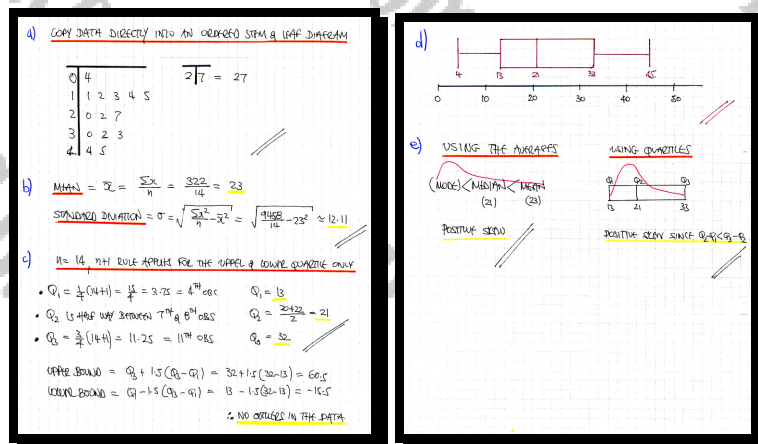 a) COPY DATA DIRECTLY INTO AN ORDERED STEM & LEAF DIAGRAM
0 | 4
2|7 = 27
1 | 1 2 3 4 5
2 | 0 2 7
3 | 0 2 3
4 | 4 5
b) MEAN = x̄ = Σx/n = 322/14 = 23
STANDARD DEVIATION = σ = √(Σx²/n - x̄²) = √(9458/14 - 23²) ≈ 12.11
c) n = 14, n+1 RULE APPLIES FOR THE UPPER & LOWER QUARTILE ONLY
• Q₁ = 1/4(14+1) = 15/4 = 3.75 = 4TH OBS Q₁ = 13
• Q₂ IS HALF WAY BETWEEN 7TH & 8TH OBS Q₂ = (20+22)/2 = 21
• Q₃ = 3/4(14+1) = 11.25 = 11TH OBS Q₃ = 32
UPPER BOUND = Q₃ + 1.5(Q₃-Q₁) = 32 + 1.5(32-13) = 60.5
LOWER BOUND = Q₁ - 1.5(Q₃-Q₁) = 13 - 1.5(32-13) = -15.5
∴ NO OUTLIERS IN THE DATA
d)
4 13 21 33 45
0 10 20 30 40 50
e) USING THE AVERAGES
(MODE) < MEDIAN < MEAN
(21) (23)
POSITIVE SKEW
USING QUARTILES
Q₁ Q₂ Q₃
13 21 33
POSITIVE SKEW SINCE Q₂-Q₁<Q₃-Q₂